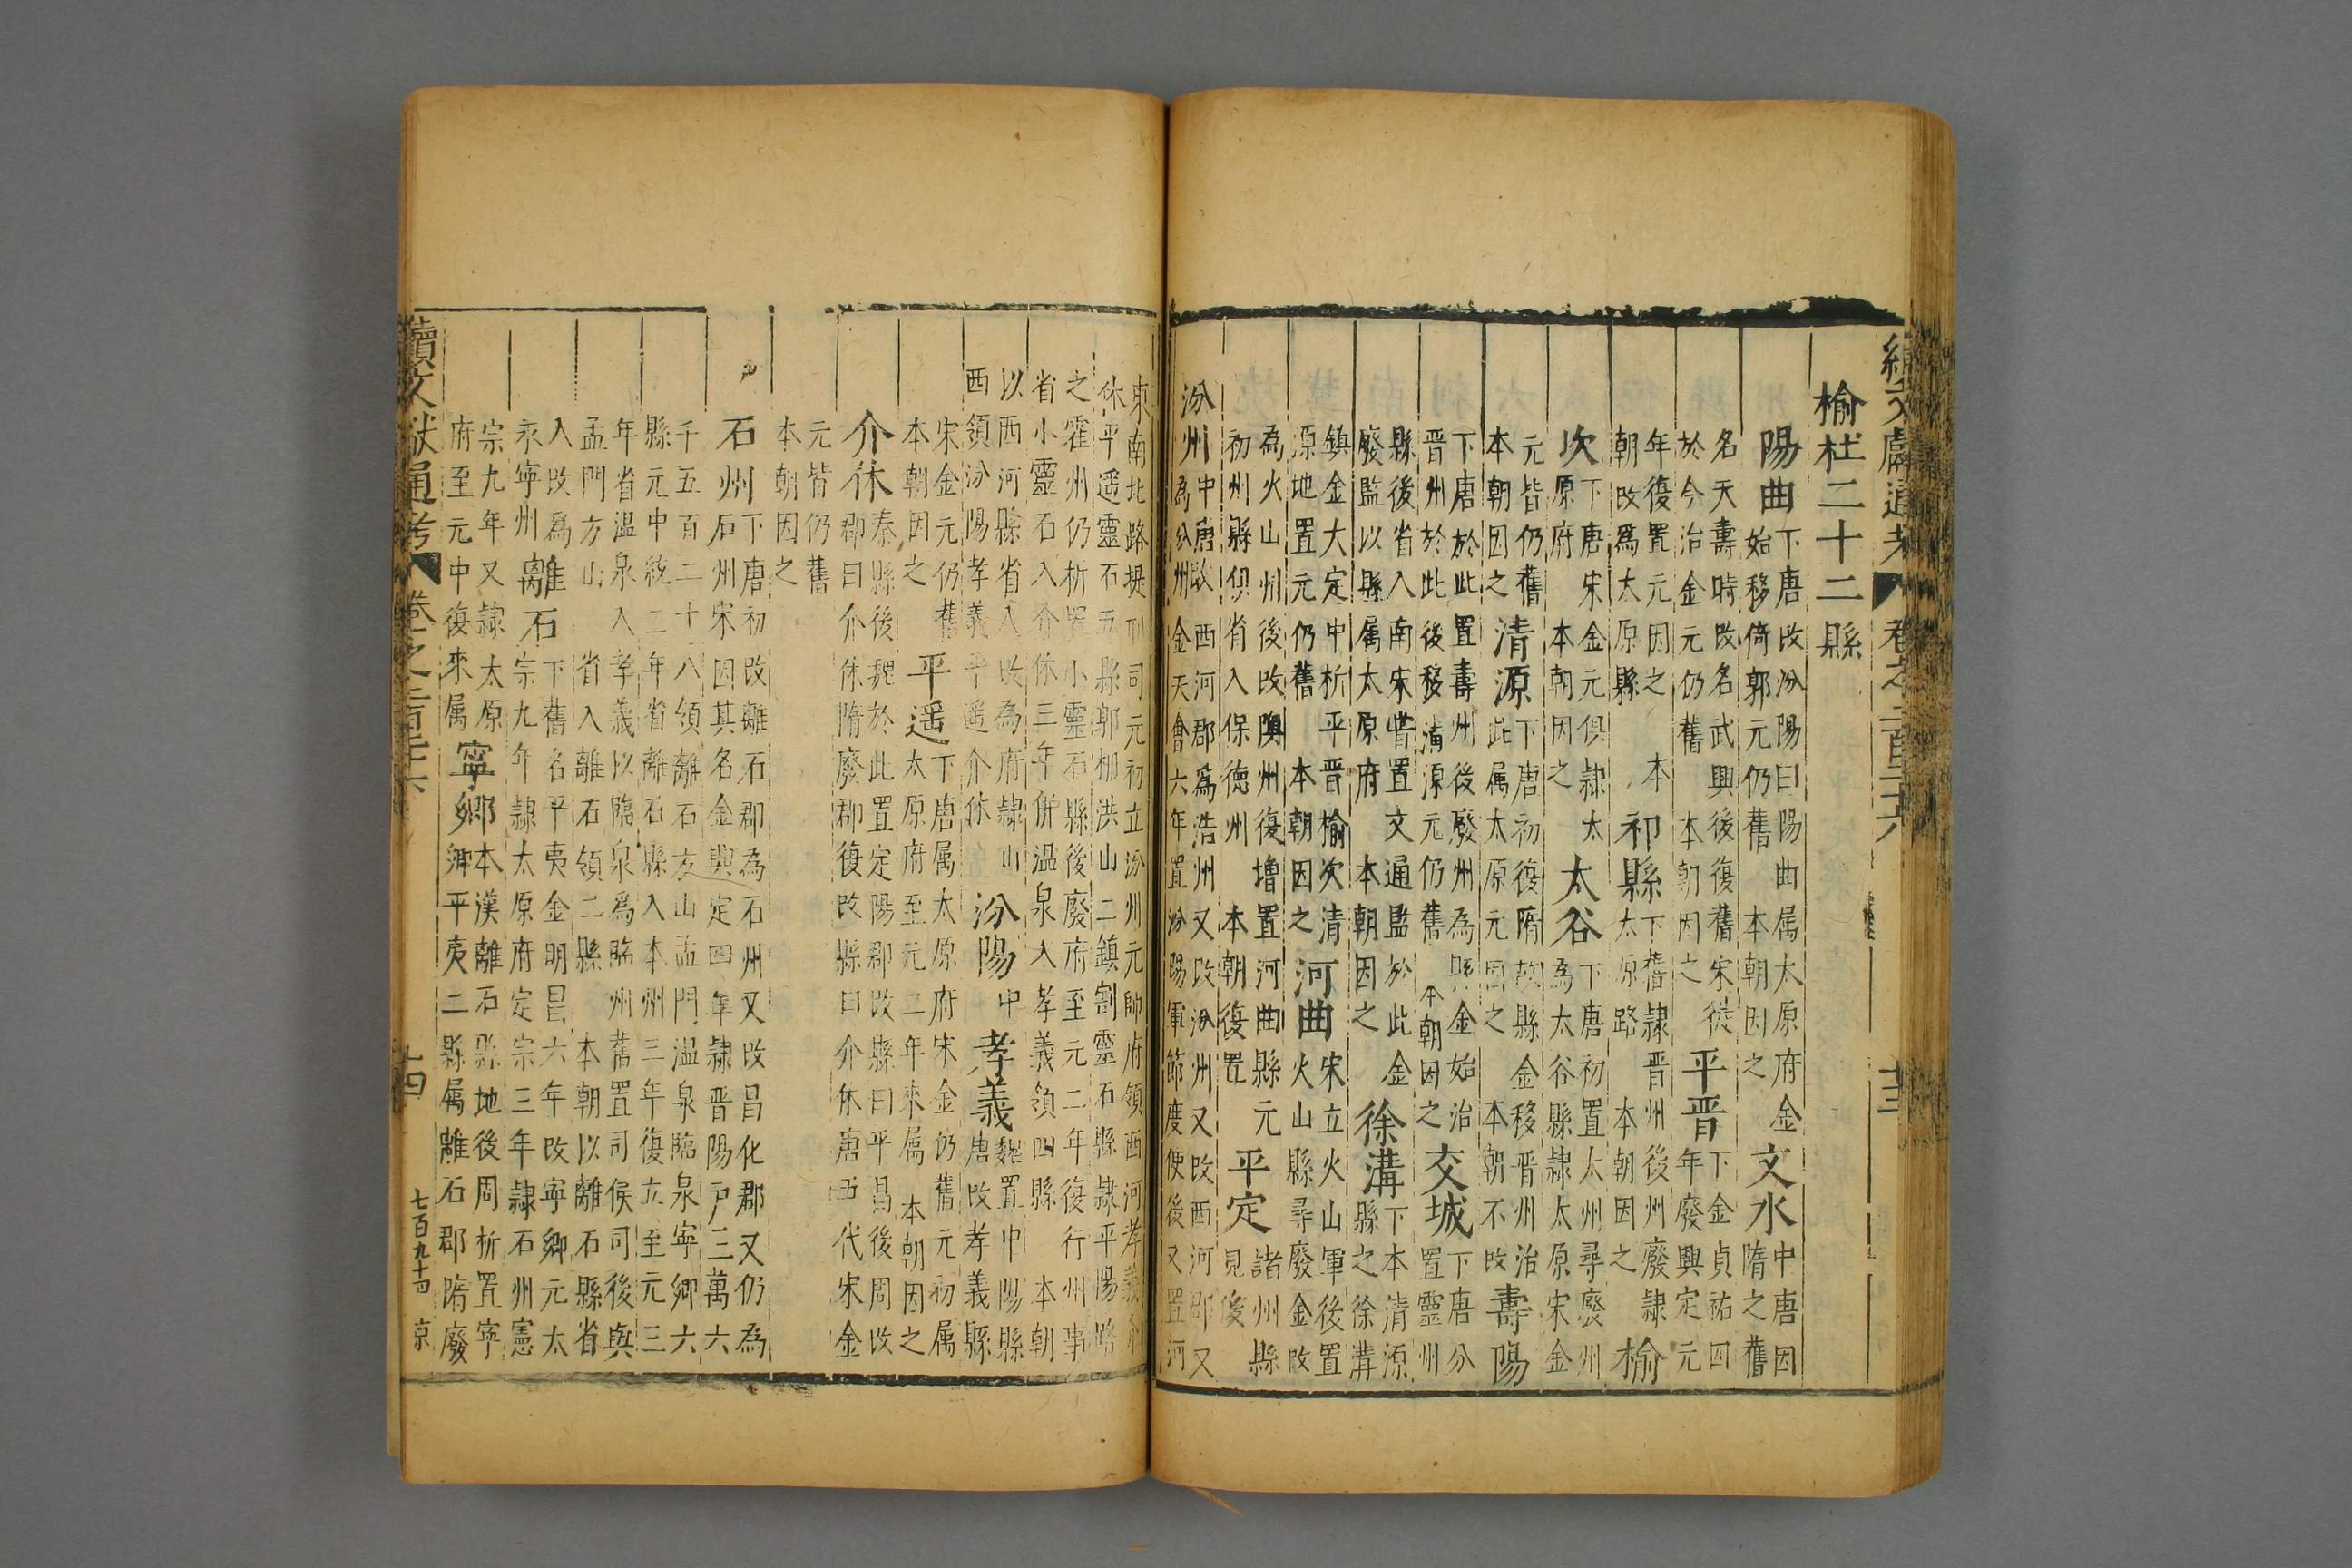 續文獻通考 卷之二百二十六 十三
榆社二十二縣
陽曲
下唐改汾陽曰陽曲属太原府金
始移倚郭元仍舊 本朝因之
文水
中唐因
隋之舊
名天壽時改名武興後復舊宋徙
於今治金元仍舊 本朝因之
平晋
下金貞祐四
年廢興定元
年復置元因之 本
朝改為太原縣
祁縣
下舊隷晋州後州廢隷
太原路 本朝因之
榆
次
下唐宋金元俱隷太
原府 本朝因之
太谷
下唐初置太州尋廢州
為太谷縣隷太原宋金
元皆仍舊
本朝因之
清源
下唐初復隋故縣金移晋州治
此属太原元因之 本朝不改
壽陽
下唐於此置壽州後廢州為縣金始治
晋州於此後移清源元仍舊 本朝因之
交城
下唐分
置靈州
縣後省入南宋嘗置文通監於此金
廢監以縣属太原府 本朝因之
徐溝
下本清源
縣之徐溝
鎮金大定中析平晋榆次清
源地置元仍舊 本朝因之
河曲
宋立火山軍後置
火山縣尋廢金改
為火山州後改隩州復增置河曲縣元
初州縣俱省入保德州 本朝復置
平定
諸州縣
見後
汾州
中唐改西河郡為浩州又改汾州又改西河郡又
為汾州金天會六年置汾陽軍節度便後又置河
東南北路提刑司元初立汾州元帥府領西河孝義介
休平遥靈石五縣郭柳洪山二鎮割靈石縣隷平陽路
之霍州仍析置小靈石縣後廢府至元二年復行州事
省小靈石入介休三年併温泉入孝義領四縣 本朝
以西河縣省入改為府隷山
西領汾陽孝義平遥介休
汾陽
中
孝義
魏置中陽縣
唐改孝義縣
宋金元仍舊
本朝因之
平遥
下唐属太原府宋金仍舊元初属
太原府至元二年來属 本朝因之
介休
秦縣後魏於此置定陽郡改縣曰平昌後周改
郡曰介休隋廢郡復改縣曰介休唐五代宋金
元皆仍舊
本朝因之
石州
下唐初改離石郡為石州又改昌化郡又仍為
石州宋因其名金興定四年隷晋陽戸三萬六
千五百二十八領離石方山孟門温泉臨泉寧鄉六
縣元中統二年省離石縣入本州三年復立至元三
年省温泉入孝義以臨泉為臨州舊置司候司後與
孟門方山省入離石領二縣 本朝以離石縣省
入改為
永寧州
離石
下舊名平夷金明昌六年改寧鄉元太
宗九年隷太原府定宗三年隷石州憲
宗九年又隷太原
府至元中復來属
寧鄉
本漢離石縣地後周析置寧
鄉平夷二縣属離石郡隋廢
續文獻通考 卷之二百二十六 十四 七百九十四 京